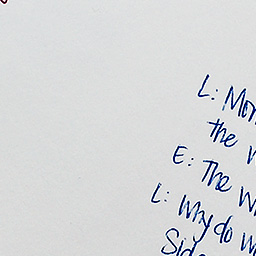 L: Mom
the w
E: The w
L: Why do w
Side